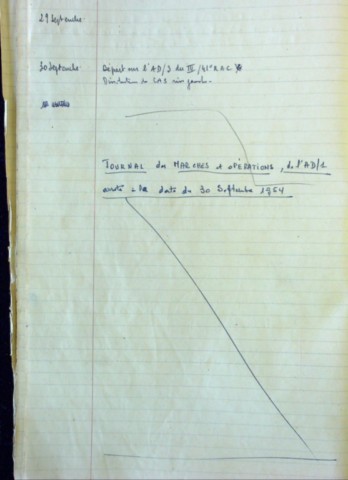 29 Septembre.
30 Septembre. Départ sur l'AD/2 du III/41e RAC
Dissolution du SAS rive gauche.
JOURNAL des MARCHES et OPÉRATIONS, de l'AD/1
arrêté à la date du 30 Septembre 1954